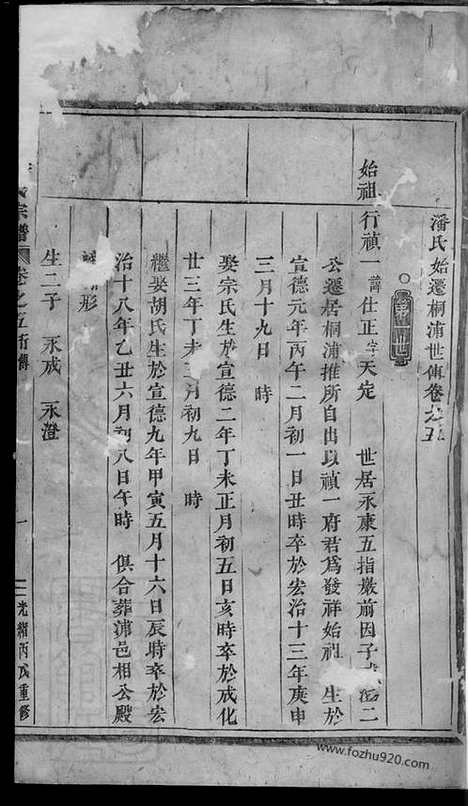 潘氏始遷桐浦世傳卷之五
第一世
始祖 行禎一 諱仕正字天定 世居永康五指巖前因子 澄二
公遷居桐浦推所自出以禎一府君爲發祥始祖 生於
宣德元年丙午二月初一日丑時卒於宏治十三年庚申
三月十九日 時
娶宗氏生於宣德二年丁未正月初五日亥時卒於成化
廿三年丁未 月初九日 時
繼娶胡氏生於宣德九年甲寅五月十六日辰時卒於宏
治十八年乙丑六月初八日午時 俱合葬浦邑相公殿
形
生二子 永成 永澄
氏宗譜 卷之五行傳 一 光緒丙戌重修
www.fozhu920.com